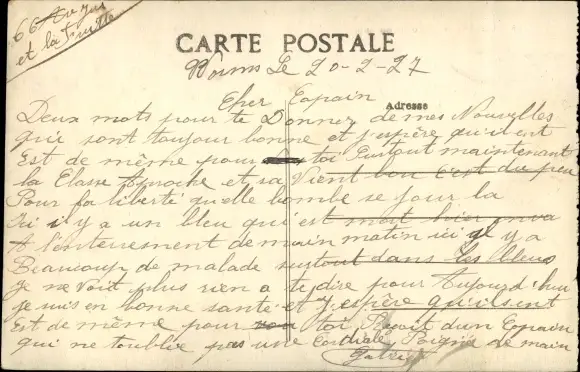 et la Fuitte
CARTE POSTALE
Worms Le 20-2-27
Cher Copain
Adresse
Deux mots pour te Donnez de mes Nouvelles
qui sont toujour bonne et j'espère qu'il ent
Est de même pour toi Surtout maintenant
la Classe Aproche et sa Vient bon c'est du peu
Pour la liberté quelle bombe se jour la
Ici il y a un bleu qui est mort hier on va
A l'enterement demain matin ici il y a
Beaucoup de malade surtout dans les bleus
Je ne Voit plus rien a te dire pour Aujourd'hui
je suis en bonne santé et J'espère qu'il sent
Est de même pour toi Reçoit d'un Copain
qui ne t'oublie pas une Cordiale Poignée de main